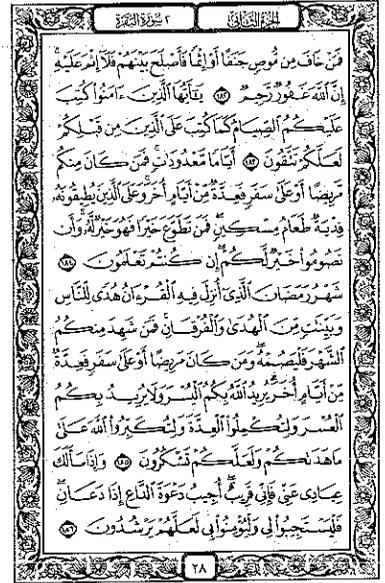 الجزء الثاني
٢ سورة البقرة
فمن خاف من موص جنفا أو إثما فأصلح بينهم فلا إثم عليه
إن الله غفور رحيم ١٨٢ يأيها الذين ءامنوا كتب
عليكم الصيام كما كتب على الذين من قبلكم
لعلكم تتقون ١٨٣ أياما معدودات فمن كان منكم
مريضا أو على سفر فعدة من أيام أخر وعلى الذين يطيقونه
فدية طعام مسكين فمن تطوع خيرا فهو خير له وأن
تصوموا خير لكم إن كنتم تعلمون ١٨٤
شهر رمضان الذي أنزل فيه القرءان هدى للناس
وبينت من الهدى والفرقان فمن شهد منكم
الشهر فليصمه ومن كان مريضا أو على سفر فعدة
من أيام أخر يريد الله بكم اليسر ولا يريد بكم
العسر ولتكملوا العدة ولتكبروا الله على
ما هدىكم ولعلكم تشكرون ١٨٥ وإذا سألك
عبادي عني فإني قريب أجيب دعوة الداع إذا دعان
فليستجيبوا لي وليؤمنوا بي لعلهم يرشدون ١٨٦
٢٨